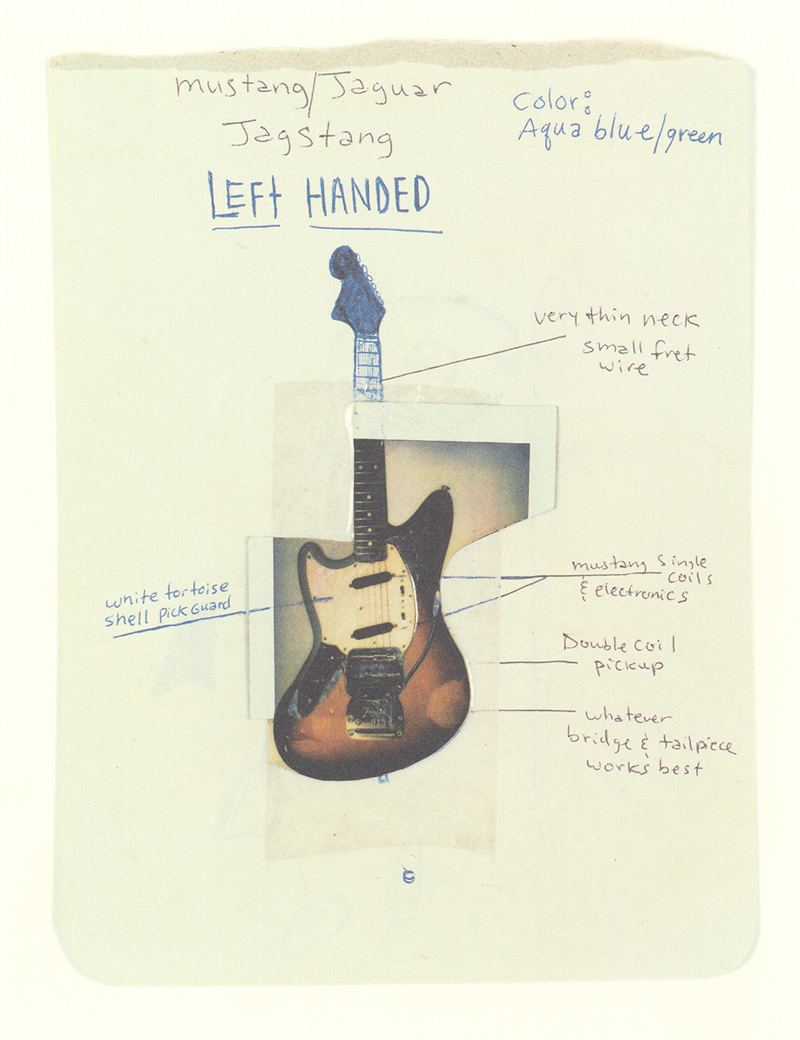 mustang/Jaguar
Jagstang
LEFT HANDED
Color:
Aqua blue/green
very thin neck
small fret
wire
white tortoise
shell Pick Guard
mustang Single
coils
& electronics
Double coil
pickup
whatever
bridge & tailpiece
works best